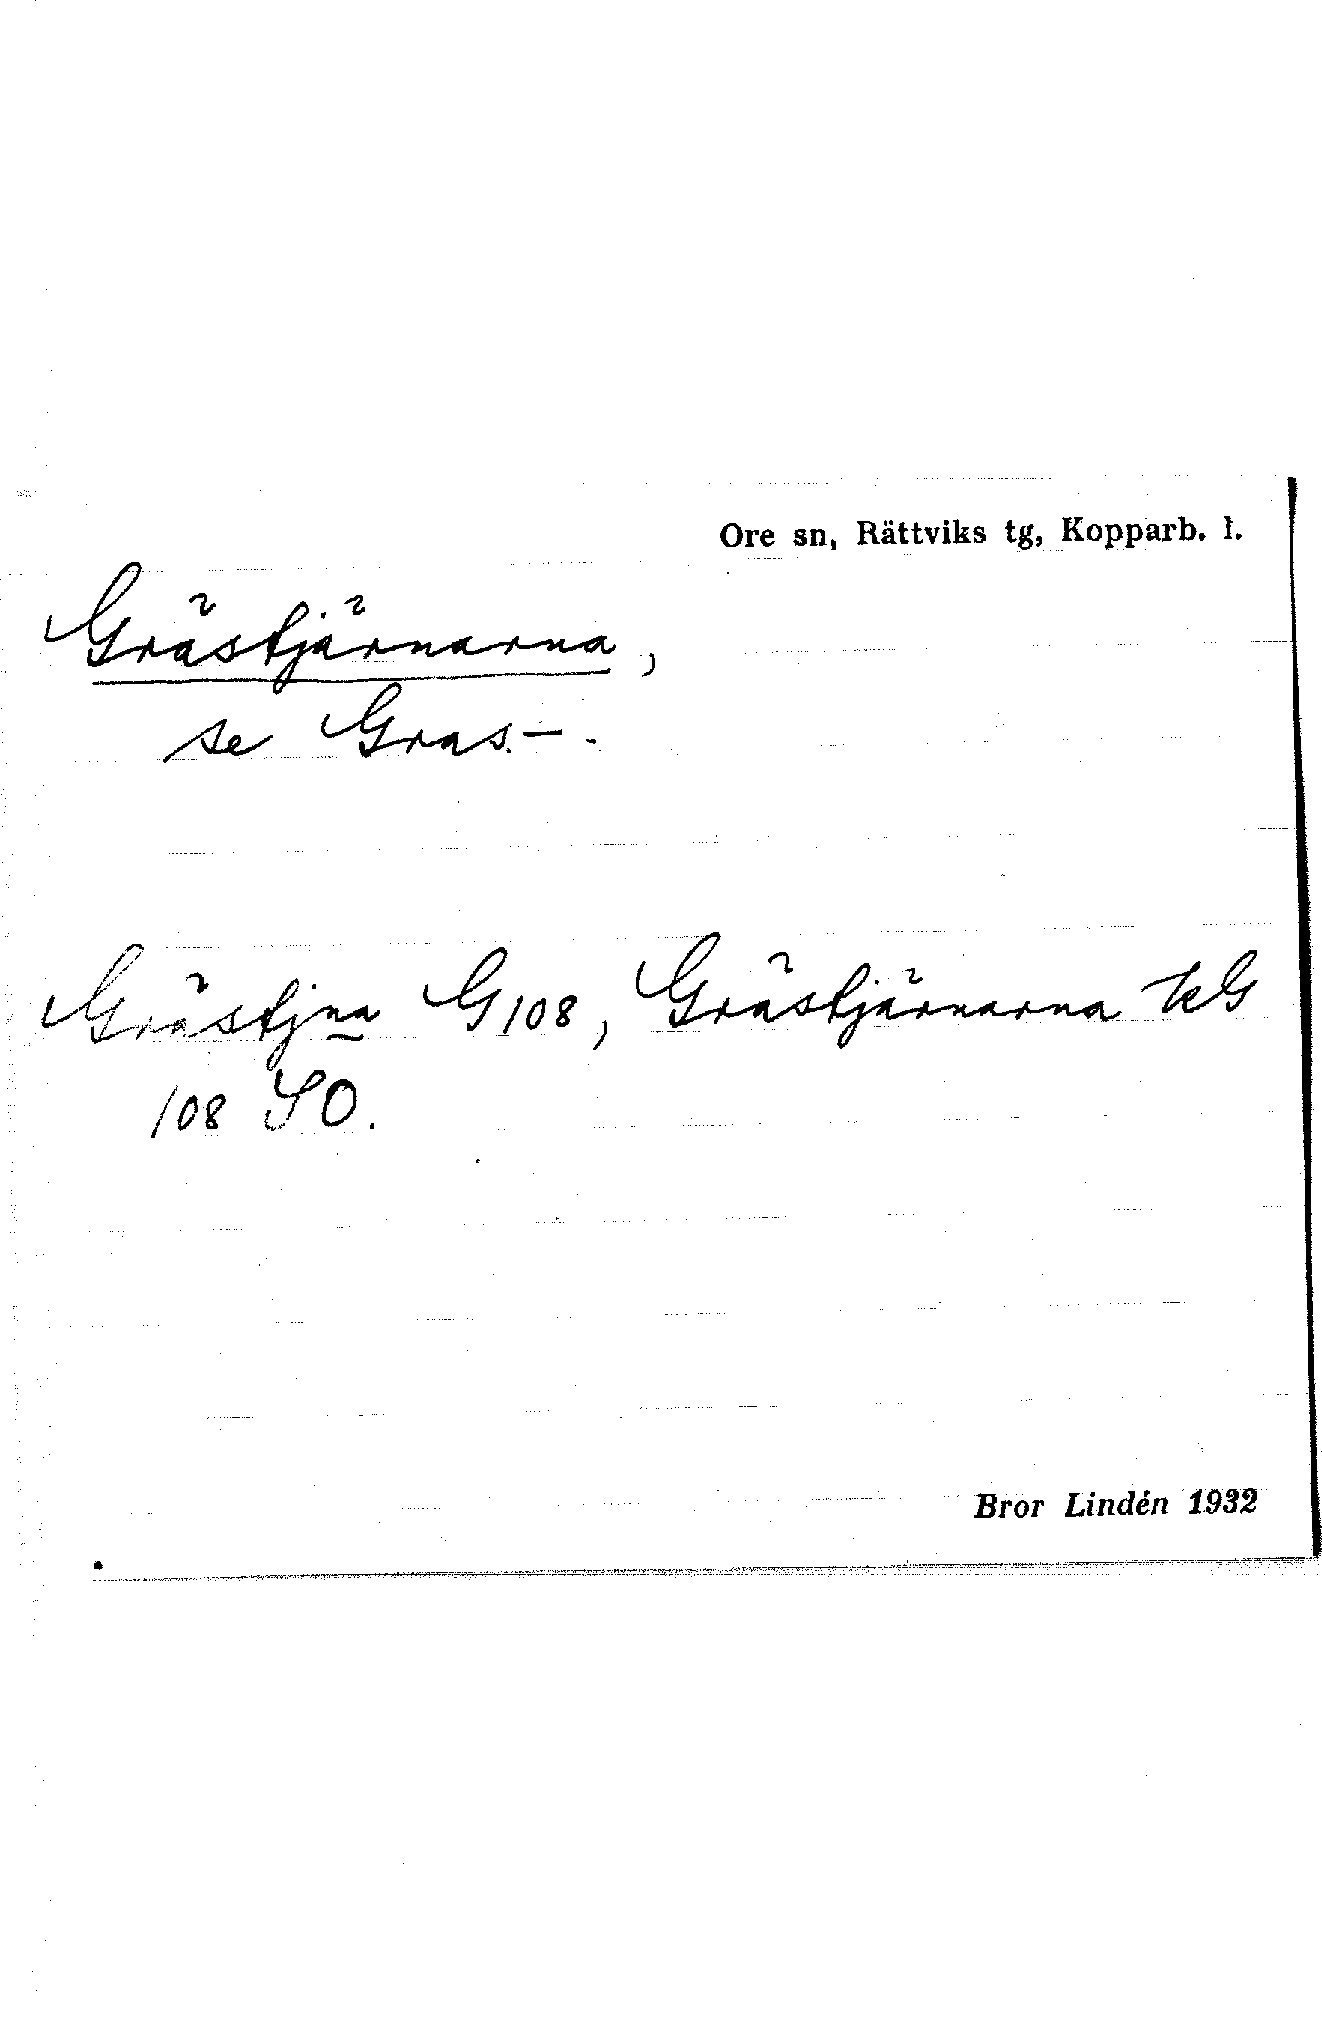 Ore sn, Rättviks tg, Kopparb. l.
Grästjärnarna,
se Gras- .
Grästjna G108, Grästjärnarna kG
108 SO.
Bror Lindén 1932